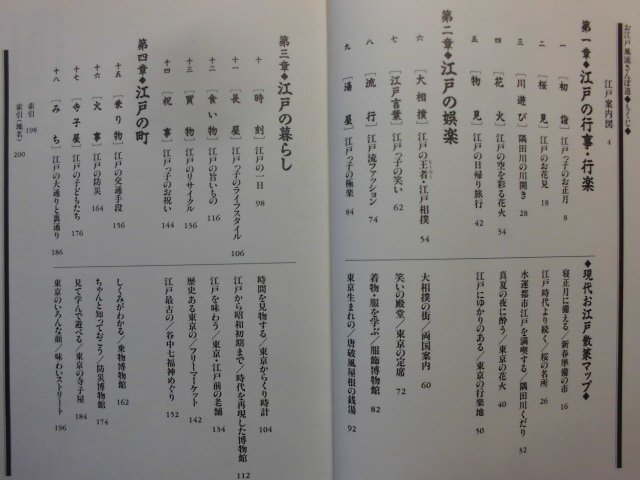 お江戸風流さんぽ道◆もくじ◆
江戸案内図 4
第一章◆江戸の行事・行楽
一 [初詣] 江戸っ子のお正月 8
二 [桜見] 江戸のお花見 18
三 [川遊び] 隅田川の川開き 28
四 [花火] 江戸の空を彩る花火 34
五 [物見] 江戸の日帰り旅行 42
第二章◆江戸の娯楽
六 [大相撲] 江戸の王者・江戸相撲 54
七 [江戸言葉] 江戸っ子の笑い 62
八 [流行] 江戸流ファッション 74
九 [湯屋] 江戸っ子の極楽 84
◆現代お江戸散策マップ◆
寝正月に備える/新春準備の市 16
江戸時代より続く/桜の名所 26
水運都市江戸を満喫する/隅田川くだり 32
真夏の夜に酔う/東京の花火 40
江戸にゆかりのある/東京の行楽地 50
大相撲の街/両国案内 60
笑いの殿堂/東京の定席 72
着物・服を学ぶ/服飾博物館 82
東京生まれの/唐破風屋根の銭湯 92
第三章◆江戸の暮らし
十 [時刻] 江戸の一日 98
十一 [長屋] 江戸っ子のライフスタイル 106
十二 [食い物] 江戸の旨いもの 116
十三 [買物] 江戸のリサイクル 136
十四 [祝事] 江戸っ子のお祝い 144
第四章◆江戸の町
十五 [乗り物] 江戸の交通手段 156
十六 [火事] 江戸の防災 164
十七 [寺子屋] 江戸の子どもたち 176
十八 [みち] 江戸の大通りと裏通り 186
索引 198
索引(地名) 200
時間を見物する/東京からくり時計 104
江戸から昭和初期まで/時代を再現した博物館 112
江戸を味わう/東京・江戸前の老舗 134
歴史ある東京の/フリーマーケット 142
江戸最古の/谷中七福神めぐり 152
しくみがわかる/乗物博物館 162
ちゃんと知っておこう/防災博物館 174
見て学んで遊べる/東京の寺子屋 184
東京のいろんな顔/味わいストリート 196